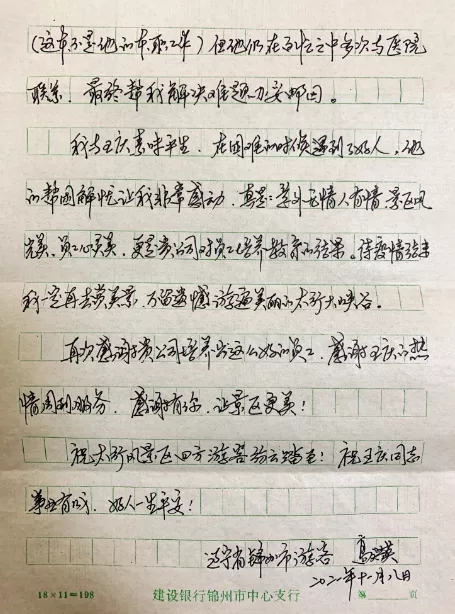 (这本不是他的本职工作)但他们在百忙之中多次与医院
联系,最终帮我解决难题办妥邮回。
我与王庆素昧平生,在困难的时候遇到了好人,他
的帮困解忧让我非常感动,真是:景外无情人有情,景区风
光美,员工心灵美,更是贵公司对员工培养教育的结果。待疫情结束
我一定再去赏美景,不留遗憾游遍美丽的太行大峡谷。
再次感谢贵公司培养出这么好的员工,感谢王庆的热
情周到服务,感谢有你,让景区更美!
祝太行风景区四方游客纷云踏至!祝王庆同志
事业有成,好人一生平安!
辽宁省锦州市游客 高
二〇二一年十一月八日
18×11=198 建设银行锦州市中心支行 第 页